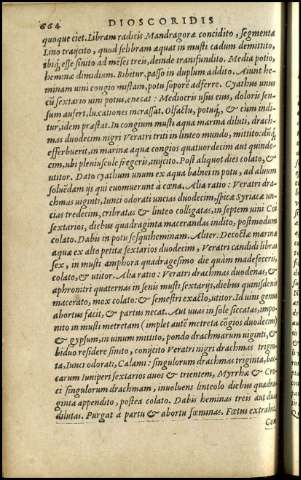 664 DIOSCORIDIS
quoque ciet. Libram radicis Mandragoræ concidito, segmenta
Lino traijcito, quod sebbram aquæ in musti cadum demittito,
ibiq; esse sinito ad meses treis, deinde transfundito. Media potio,
hemina dimidium. Bibitur, passo in duplum addito. Aiunt he-
minam uini congio mistam, potu soporē adferre. Cyathus unus
cū sextario uini potus, enecat: Mediocris usus eius, doloris sen-
sum aufert, luxationes incrassat. Olfactu, potuq́; & cum indi-
tur, idem præstat. In congium musti aqua marina diluti, drach-
mas duodecim nigri Veratri triti in linteo mundo, mittito: dūq́;
efferbuerit, in marina aqua congios quatuordecim aut quinde-
cim, ubi pleniuscule fregeris, inijcito. Post aliquot dies colato, &
utitor. Dato cyathum unum ex aqua balnei in potu, ad aluum
soluēdam ijs qui euomuerunt à cœna. Alia ratio: Veratri dra-
chmas uiginti, Iunci odorati uncias duodecim, spicæ Syriacæ un-
cias tredecim, cribratas & linteo colligatas, in septem uini Coi
sextarios, diebus quadraginta macerandas indito, posimodum
colato. Dabis in potu sesquiheminam. Aliter. Decoctæ marinæ
aquæ ex alto petitæ sextarios duodecim, Veratri candidi libras
sex, in musti amphora quadragesimo die quàm madefeceris,
colato: & utitor. Alia ratio: Veratri drachmas duodenas, &
aphronitri quaternas in senis musti sextarijs, diebus quinisdenis
macerato, mox colato: & semestri exacto, utitor. Id uini genus
abortus facit, & partus necat. Aut uuas in sole siccatas, impo-
nito in musti metretam (implet autē metreta cōgios duodecim)
& gypsum, in unum mittito, pondo drachmarum uiginti, &
biduo residere sinito, conijcito Veratri nigri drachmas trigin-
ta, Iunci odorati, Calami: singulorum drachmas triginta, bac-
carum iuniperi sextarios duos & trientem, Myrrhæ & Cro-
ci singulorum drachmam, inuoluens linteolo diebus quadra-
ginta appendito, postea colato. Dabis heminas treis aut duas
dilutas. Purgat à partu & abortu fœminas. Fœtus extrahit,